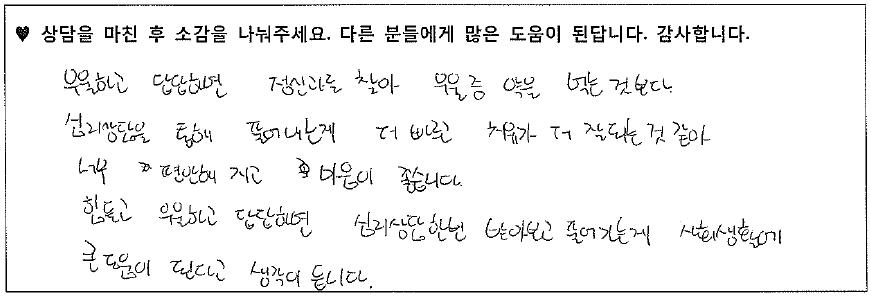 ♥ 상담을 마친 후 소감을 나눠주세요. 다른 분들에게 많은 도움이 된답니다. 감사합니다.
우울하고 답답하면 정신과를 찾아 우울증 약을 먹는 것보다.
심리상담을 통해 풀어내는게 더 빠르고 치유가 더 잘되는것 같아
너무 편안해 지고 마음이 좋습니다.
힘들고 우울하고 답답하면 심리상담한번 받아보고 풀어가는게 사회생활에
큰 도움이 된다고 생각이 듭니다.